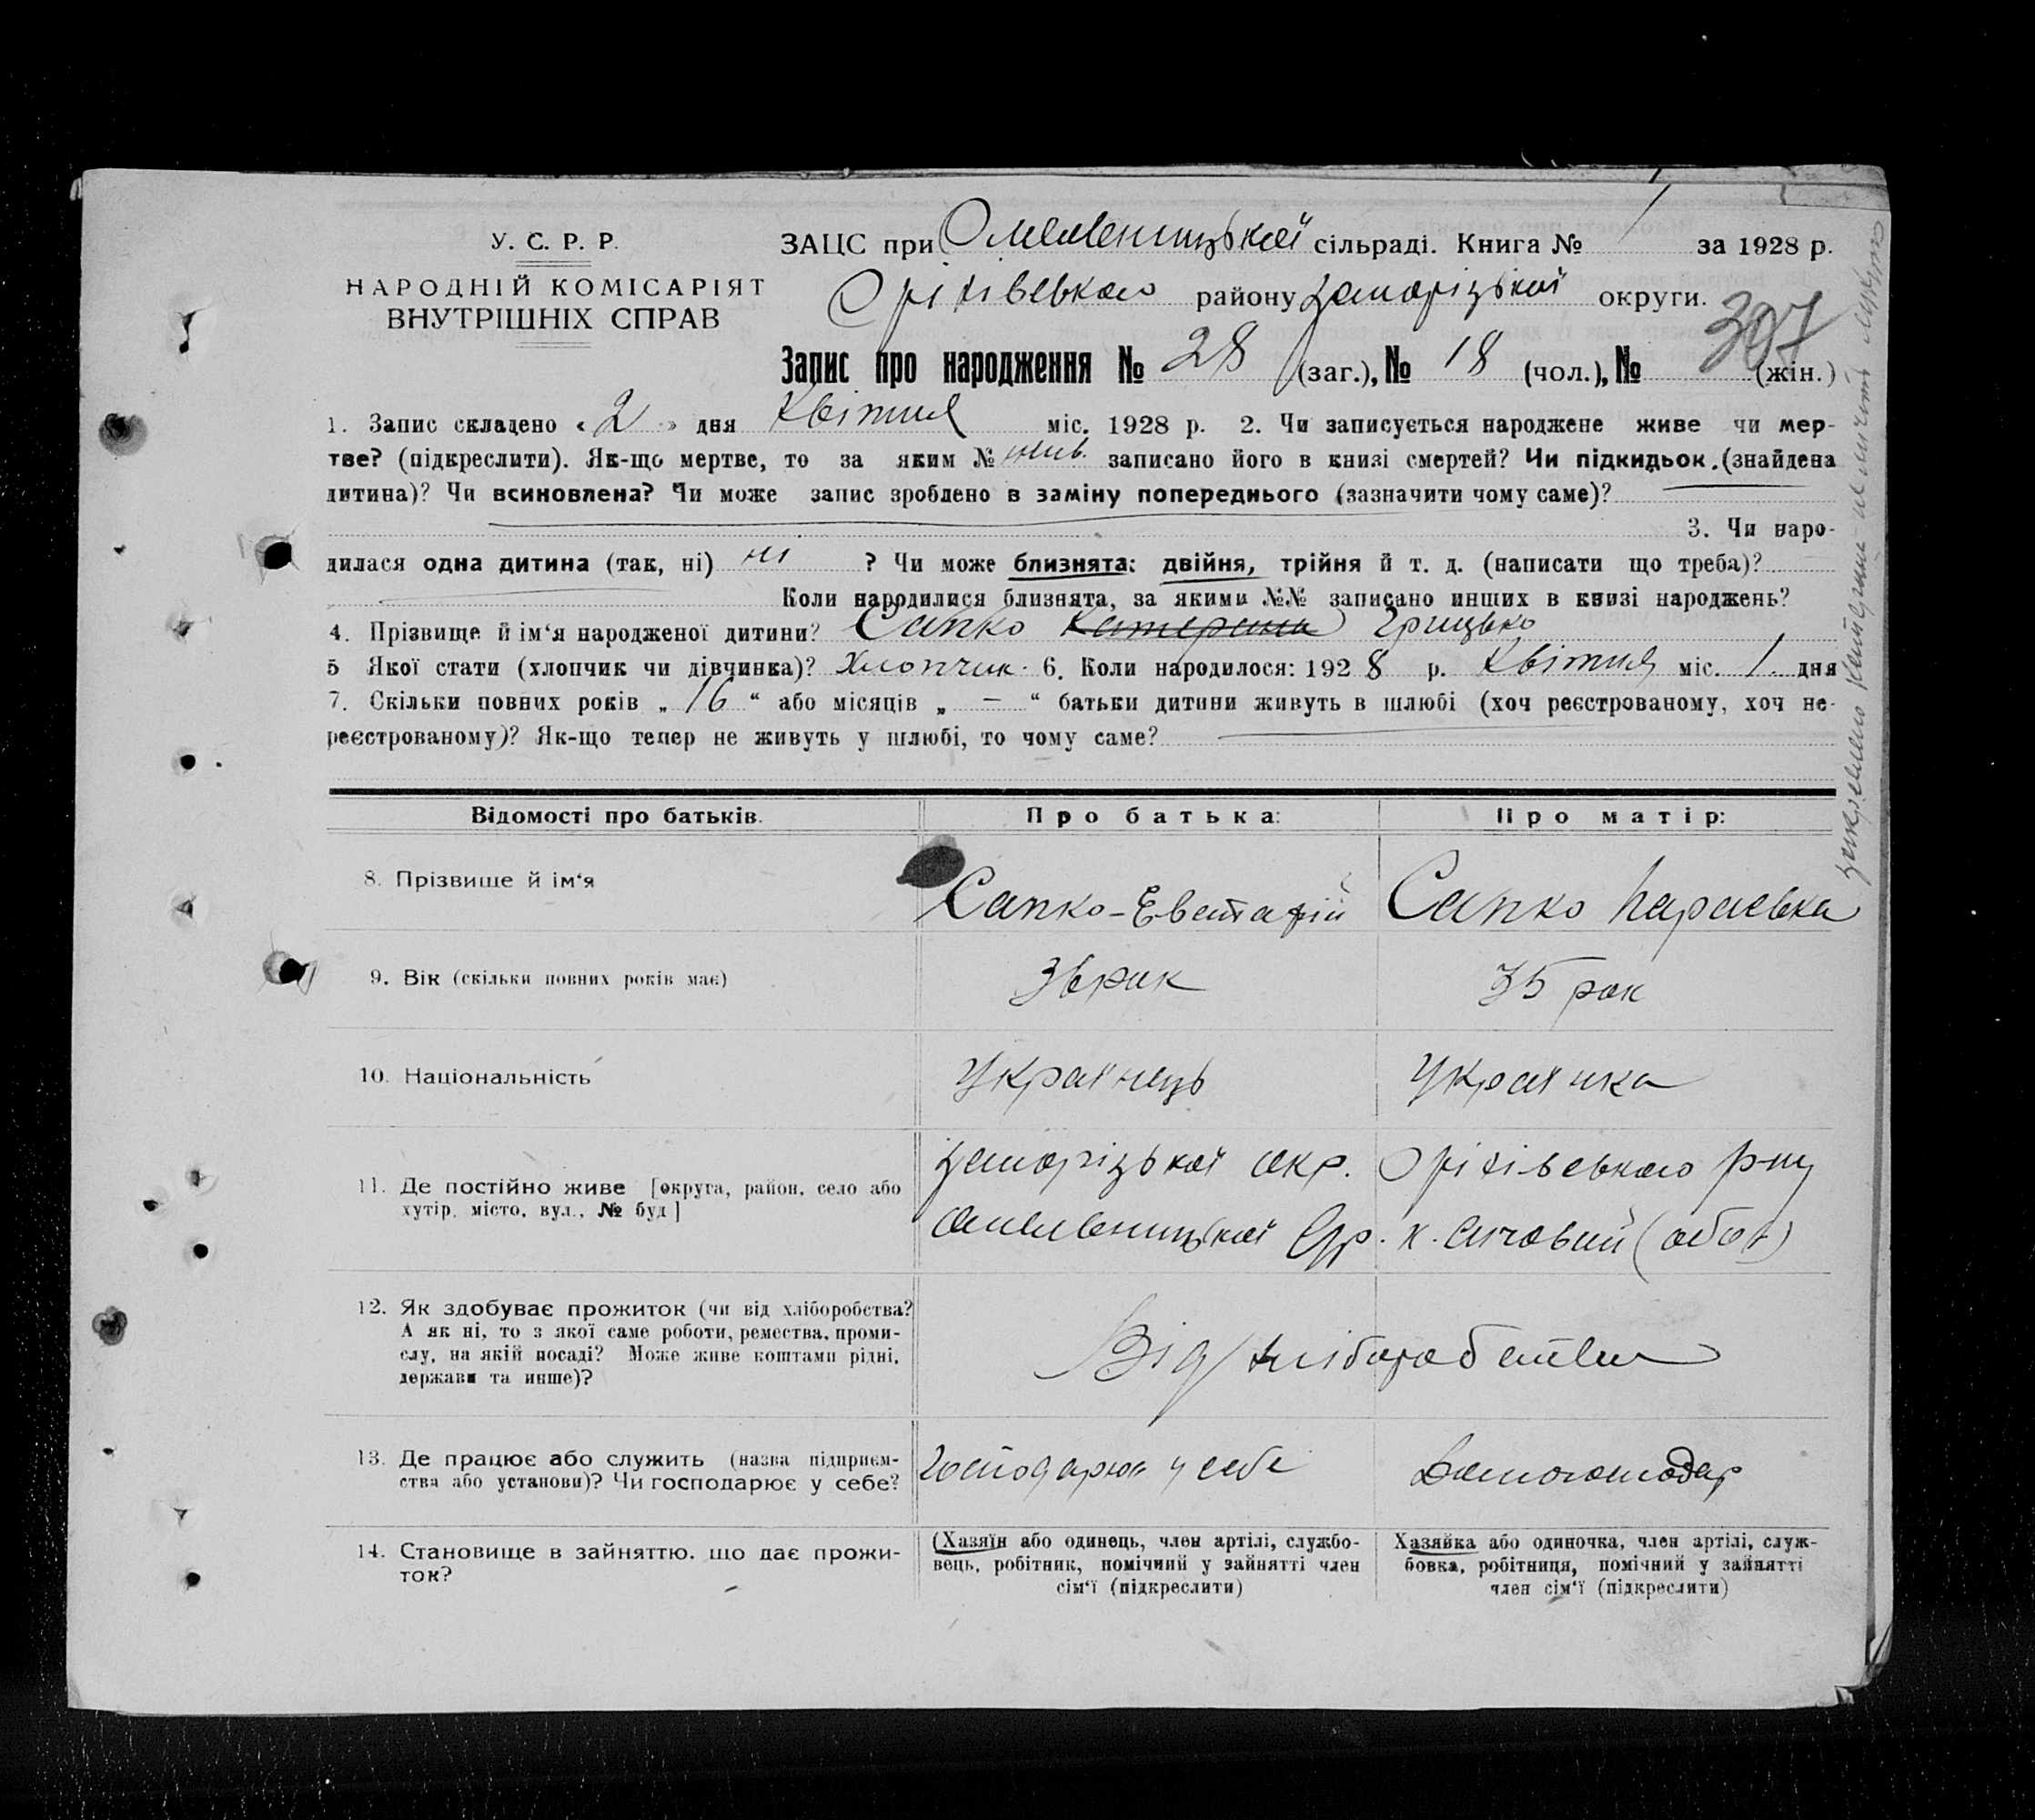 У. С. Р. Р.
НАРОДНІЙ КОМІСАРІЯТ
ВНУТРІШНІХ СПРАВ
ЗАЦС при Омельницької сільраді. Книга № 1 за 1928 р.
Оріхівського району Запоріzької округи.
397
Запис про народження № 28 (заг.), № 18 (чол.), № (жін.)
1. Запис складено « 2 » дня Квітня міс. 1928 р. 2. Чи записується народжене живе чи мер-
тве? (підкреслити). Як-що мертве, то за яким № жив. записано його в книзі смертей? Чи підкидьок (знайдена
дитина)? Чи всиновлена? Чи може запис зроблено в заміну попереднього (зазначити чому саме)?
3. Чи наро-
дилася одна дитина (так, ні) ні ? Чи може близнята: двійня, трійня й т. д. (написати що треба)?
Коли народилися близнята, за якими №№ записано инших в книзі народжень?
4. Прізвище й ім‘я народженої дитини? Сапко Катерина Грицько
5 Якої стати (хлопчик чи дівчинка)? Хлопчик. 6. Коли народилося: 1928 р. Квітня міс. 1. дня
7. Скільки повних років „ 16 “ або місяців „ — “ батьки дитини живуть в шлюбі (хоч реєстрованому, хоч не-
реєстрованому)? Як-що тепер не живуть у шлюбі, то чому саме?
Відомості про батьків.
Про батька:
Про матір:
8. Прізвище й ім‘я
Сапко-Евстафій
Сапко Параська
9. Вік (скільки повних років має)
36 рик
35 рок
10. Національність
Українець
Українка
11. Де постійно живе [округа, район, село або
хутір, місто, вул., № буд]
Запорізької окр. Оріхівського р-ну
Омельницької С/р. к. Січовий
12. Як здобуває прожиток (чи від хліборобства?
А як ні, то з якої саме роботи, ремества, проми-
слу, на якій посаді? Може живе коштами рідні,
держави та инше)?
Від хліборобства
13. Де працює або служить (назва підприєм-
ства або установи)? Чи господарює у себе?
Господарює у себе
Домогосподар
14. Становище в зайняттю, що дає прожи-
ток?
(Хазяїн або одинець, член артілі, службо-
вець, робітник, помічний у зайнятті член
сім‘ї (підкреслити)
Хазяйка або одиночка, член артілі, служ-
бовка, робітниця, помічний у зайнятті
член сім‘ї (підкреслити)
закреслено Катерина